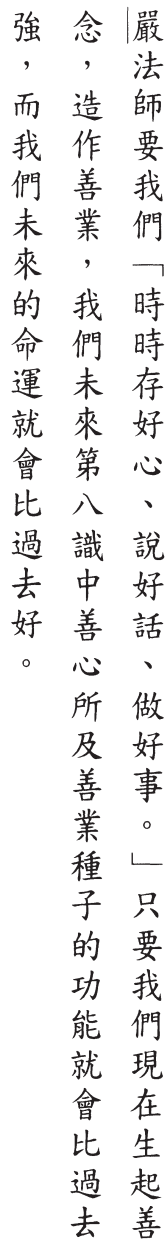 嚴法師要我們「時時存好心、說好話、做好事。」只要我們現在生起善
念，造作善業，我們未來第八識中善心所及善業種子的功能就會比過去
強，而我們未來的命運就會比過去好。